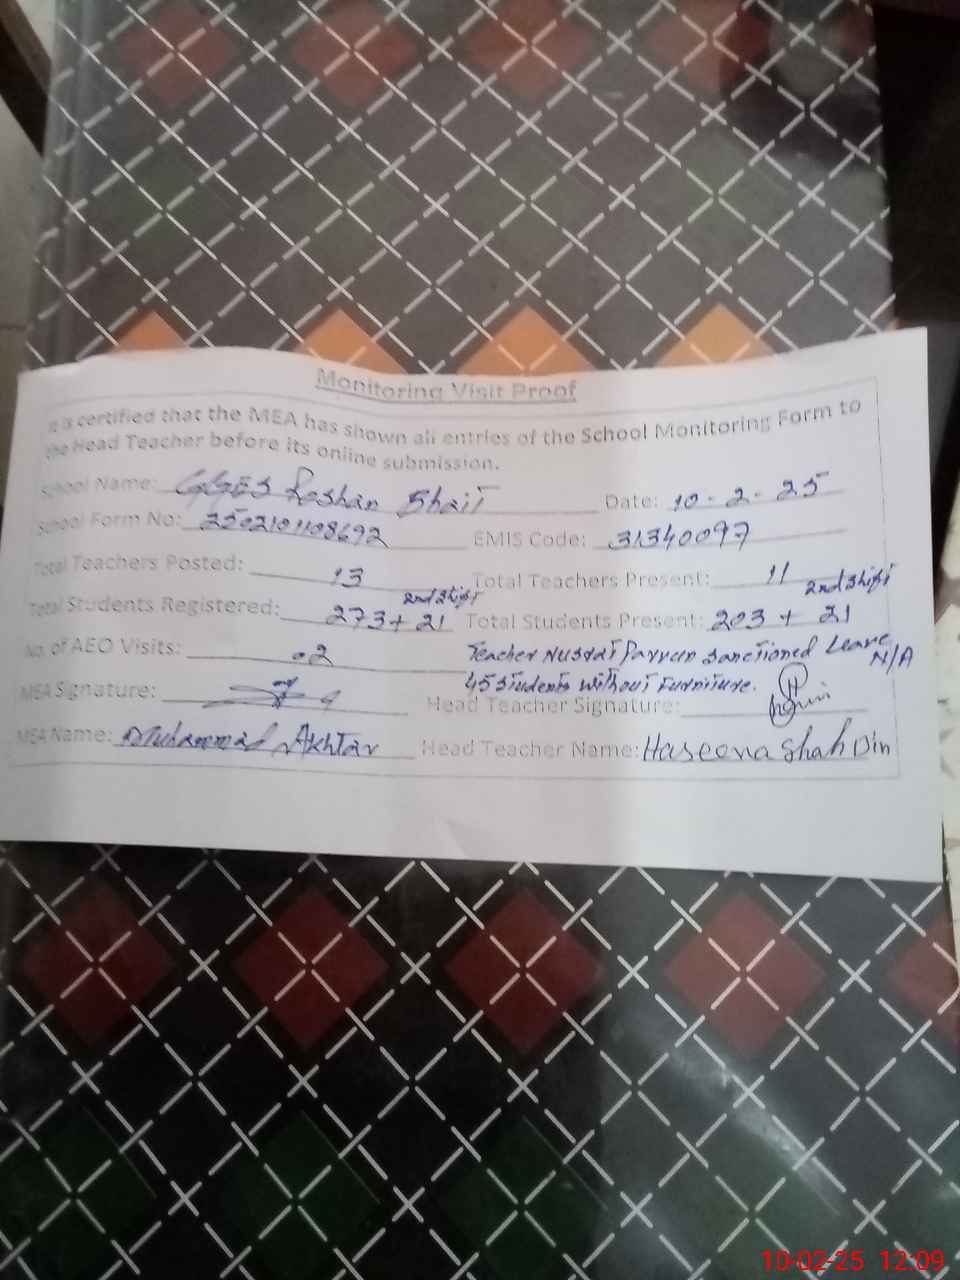 Monitoring Visit Proof
It is certified that the MEA has shown all entries of the School Monitoring Form to
the Head Teacher before its online submission.
School Name: GGES Roshan Bhait Date: 10-2-25
School Form No: 2502101108692 EMIS Code: 31340097
Total Teachers Posted: 13 Total Teachers Present: 11
2nd Shift 2nd Shift
Total Students Registered: 273 + 21 Total Students Present: 203 + 21
No. of AEO Visits: 02 Teacher Nusrat Parveen Sanctioned Leave
N/A
45 Students without Furniture.
MEA Signature: Head Teacher Signature:
MEA Name: Muhammad Akhtar Head Teacher Name: Haseena Shah Din
10-02-25 12:09